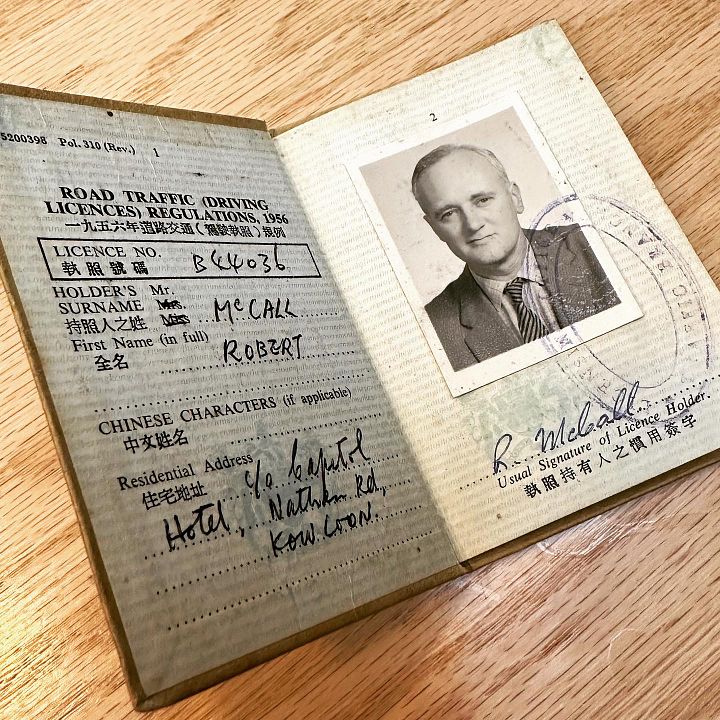 5200398 Pol. 310 (Rev.) 1
ROAD TRAFFIC (DRIVING
LICENCES) REGULATIONS, 1956
一九五六年道路交通(駕駛執照)規例
LICENCE NO. B44036
執照號碼
HOLDER'S Mr.
SURNAME Mrs. McCALL
持照人之姓 Miss
First Name (in full) ROBERT
全名
CHINESE CHARACTERS (if applicable)
中文姓名
Residential Address c/o Capitol
住宅地址
Hotel, Nathan Rd,
KOWLOON.
2
TRAFFIC BRANCH
R. McCall
Usual Signature of Licence Holder.
執照持有人之慣用簽字